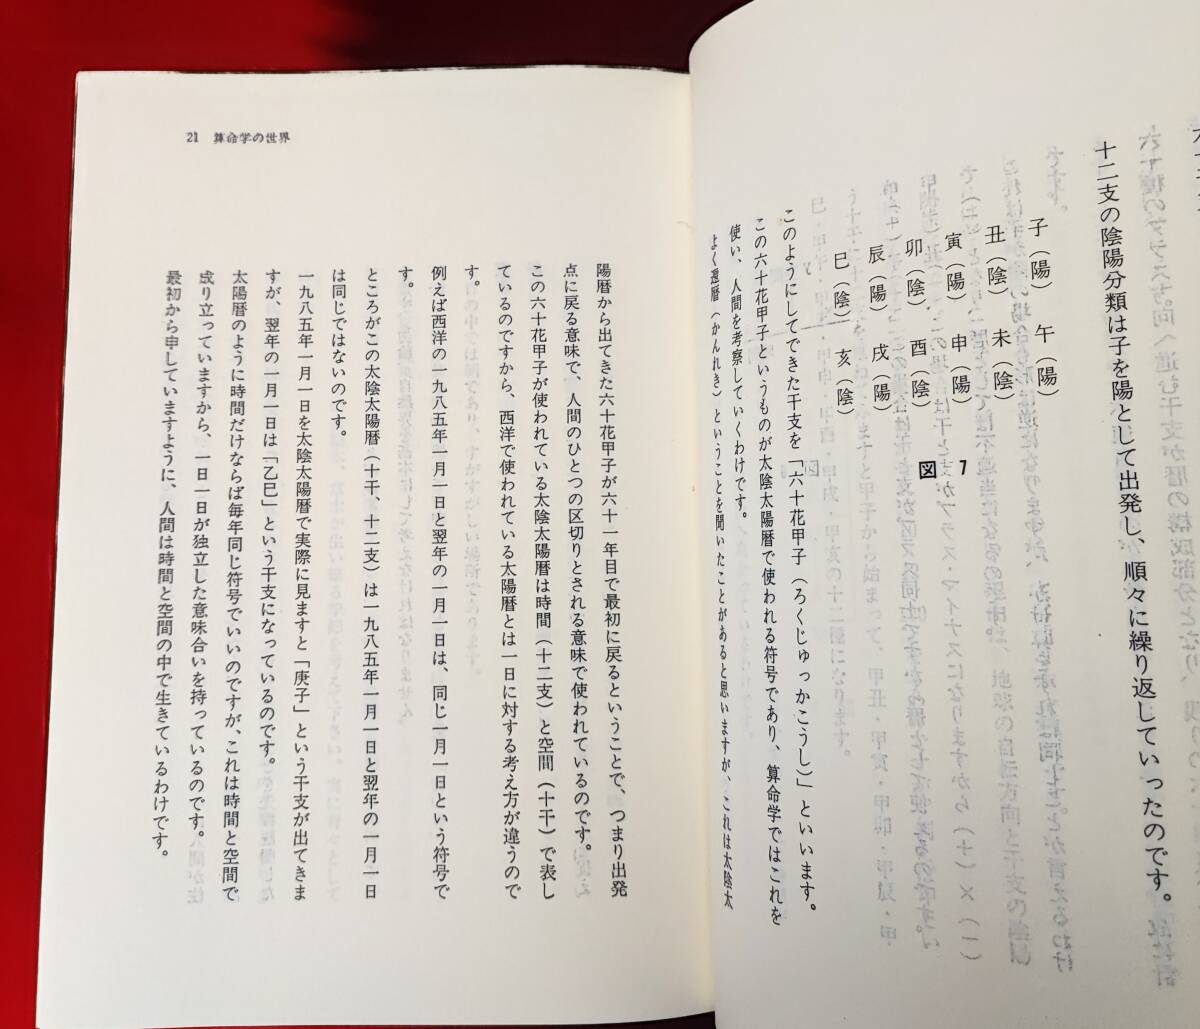 十二支の陰陽分類は子を陽として出発し、順々に繰り返していったのです。
子（陽） 午（陽）
丑（陰） 未（陰）
寅（陽） 申（陽）
卯（陰） 酉（陰）
辰（陽） 戌（陽）
巳（陰） 亥（陰）
図 7
このようにしてできた干支を「六十花甲子（ろくじゅっかこうし）」といいます。
この六十花甲子というものが太陰太陽暦で使われる符号であり、算命学ではこれを
使い、人間を考察していくわけです。
よく還暦（かんれき）ということを聞いたことがあると思いますが、これは太陰太
21 算命学の世界
陽暦から出てきた六十花甲子が六十一年目で最初に戻るということで、つまり出発
点に戻る意味で、人間のひとつの区切りとされる意味で使われているのです。
この六十花甲子が使われている太陰太陽暦は時間（十二支）と空間（十干）で表し
ているのですから、西洋で使われている太陽暦とは一日に対する考え方が違うので
す。
例えば西洋の一九八五年一月一日と翌年の一月一日は、同じ一月一日という符号で
す。
ところがこの太陰太陽暦（十干、十二支）は一九八五年一月一日と翌年の一月一日
は同じではないのです。
一九八五年一月一日を太陰太陽暦で実際に見ますと「庚子」という干支が出てきま
すが、翌年の一月一日は「乙巳」という干支になっているのです。
太陽暦のように時間だけならば毎年同じ符号でいいのですが、これは時間と空間で
成り立っていますから、一日一日が独立した意味合いを持っているのです。
最初から申していますように、人間は時間と空間の中で生きているわけです。